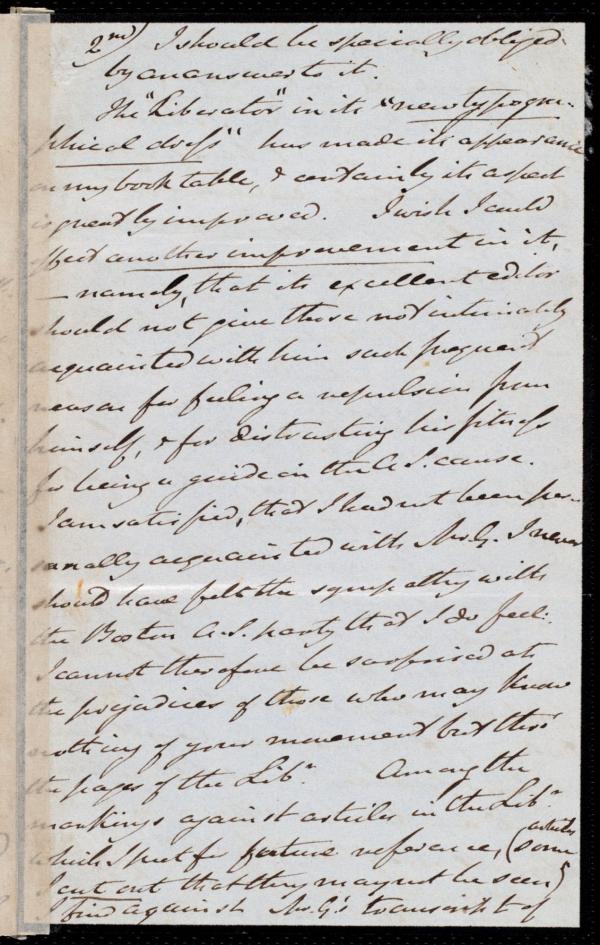 2nd) I should be specially obliged
by an answer to it.
The "Liberator" in its "new typogra-
phical dress" has made its appearance
on my book table, & certainly its aspect
is greatly improved. I wish I could
effect another improvement in it,
— namely, that its excellent editor
should not give those not intimately
acquainted with him such frequent
reason for feeling a repulsion from
himself, & for distrusting his fitness
for being a guide in the A.S. cause.
I am satisfied, that I had not been per-
sonally acquainted with Mr. G. I never
should have felt the sympathy with
the Boston A.S. party that I do feel:
I cannot therefore be surprised at
the prejudices of those who may know
nothing of your movement but thro'
the pages of the Libr. Among the
markings against articles in the Libr.
which I put for future reference, (some articles
I cut out that they may not be seen)
I find against Mr. G's transcript of